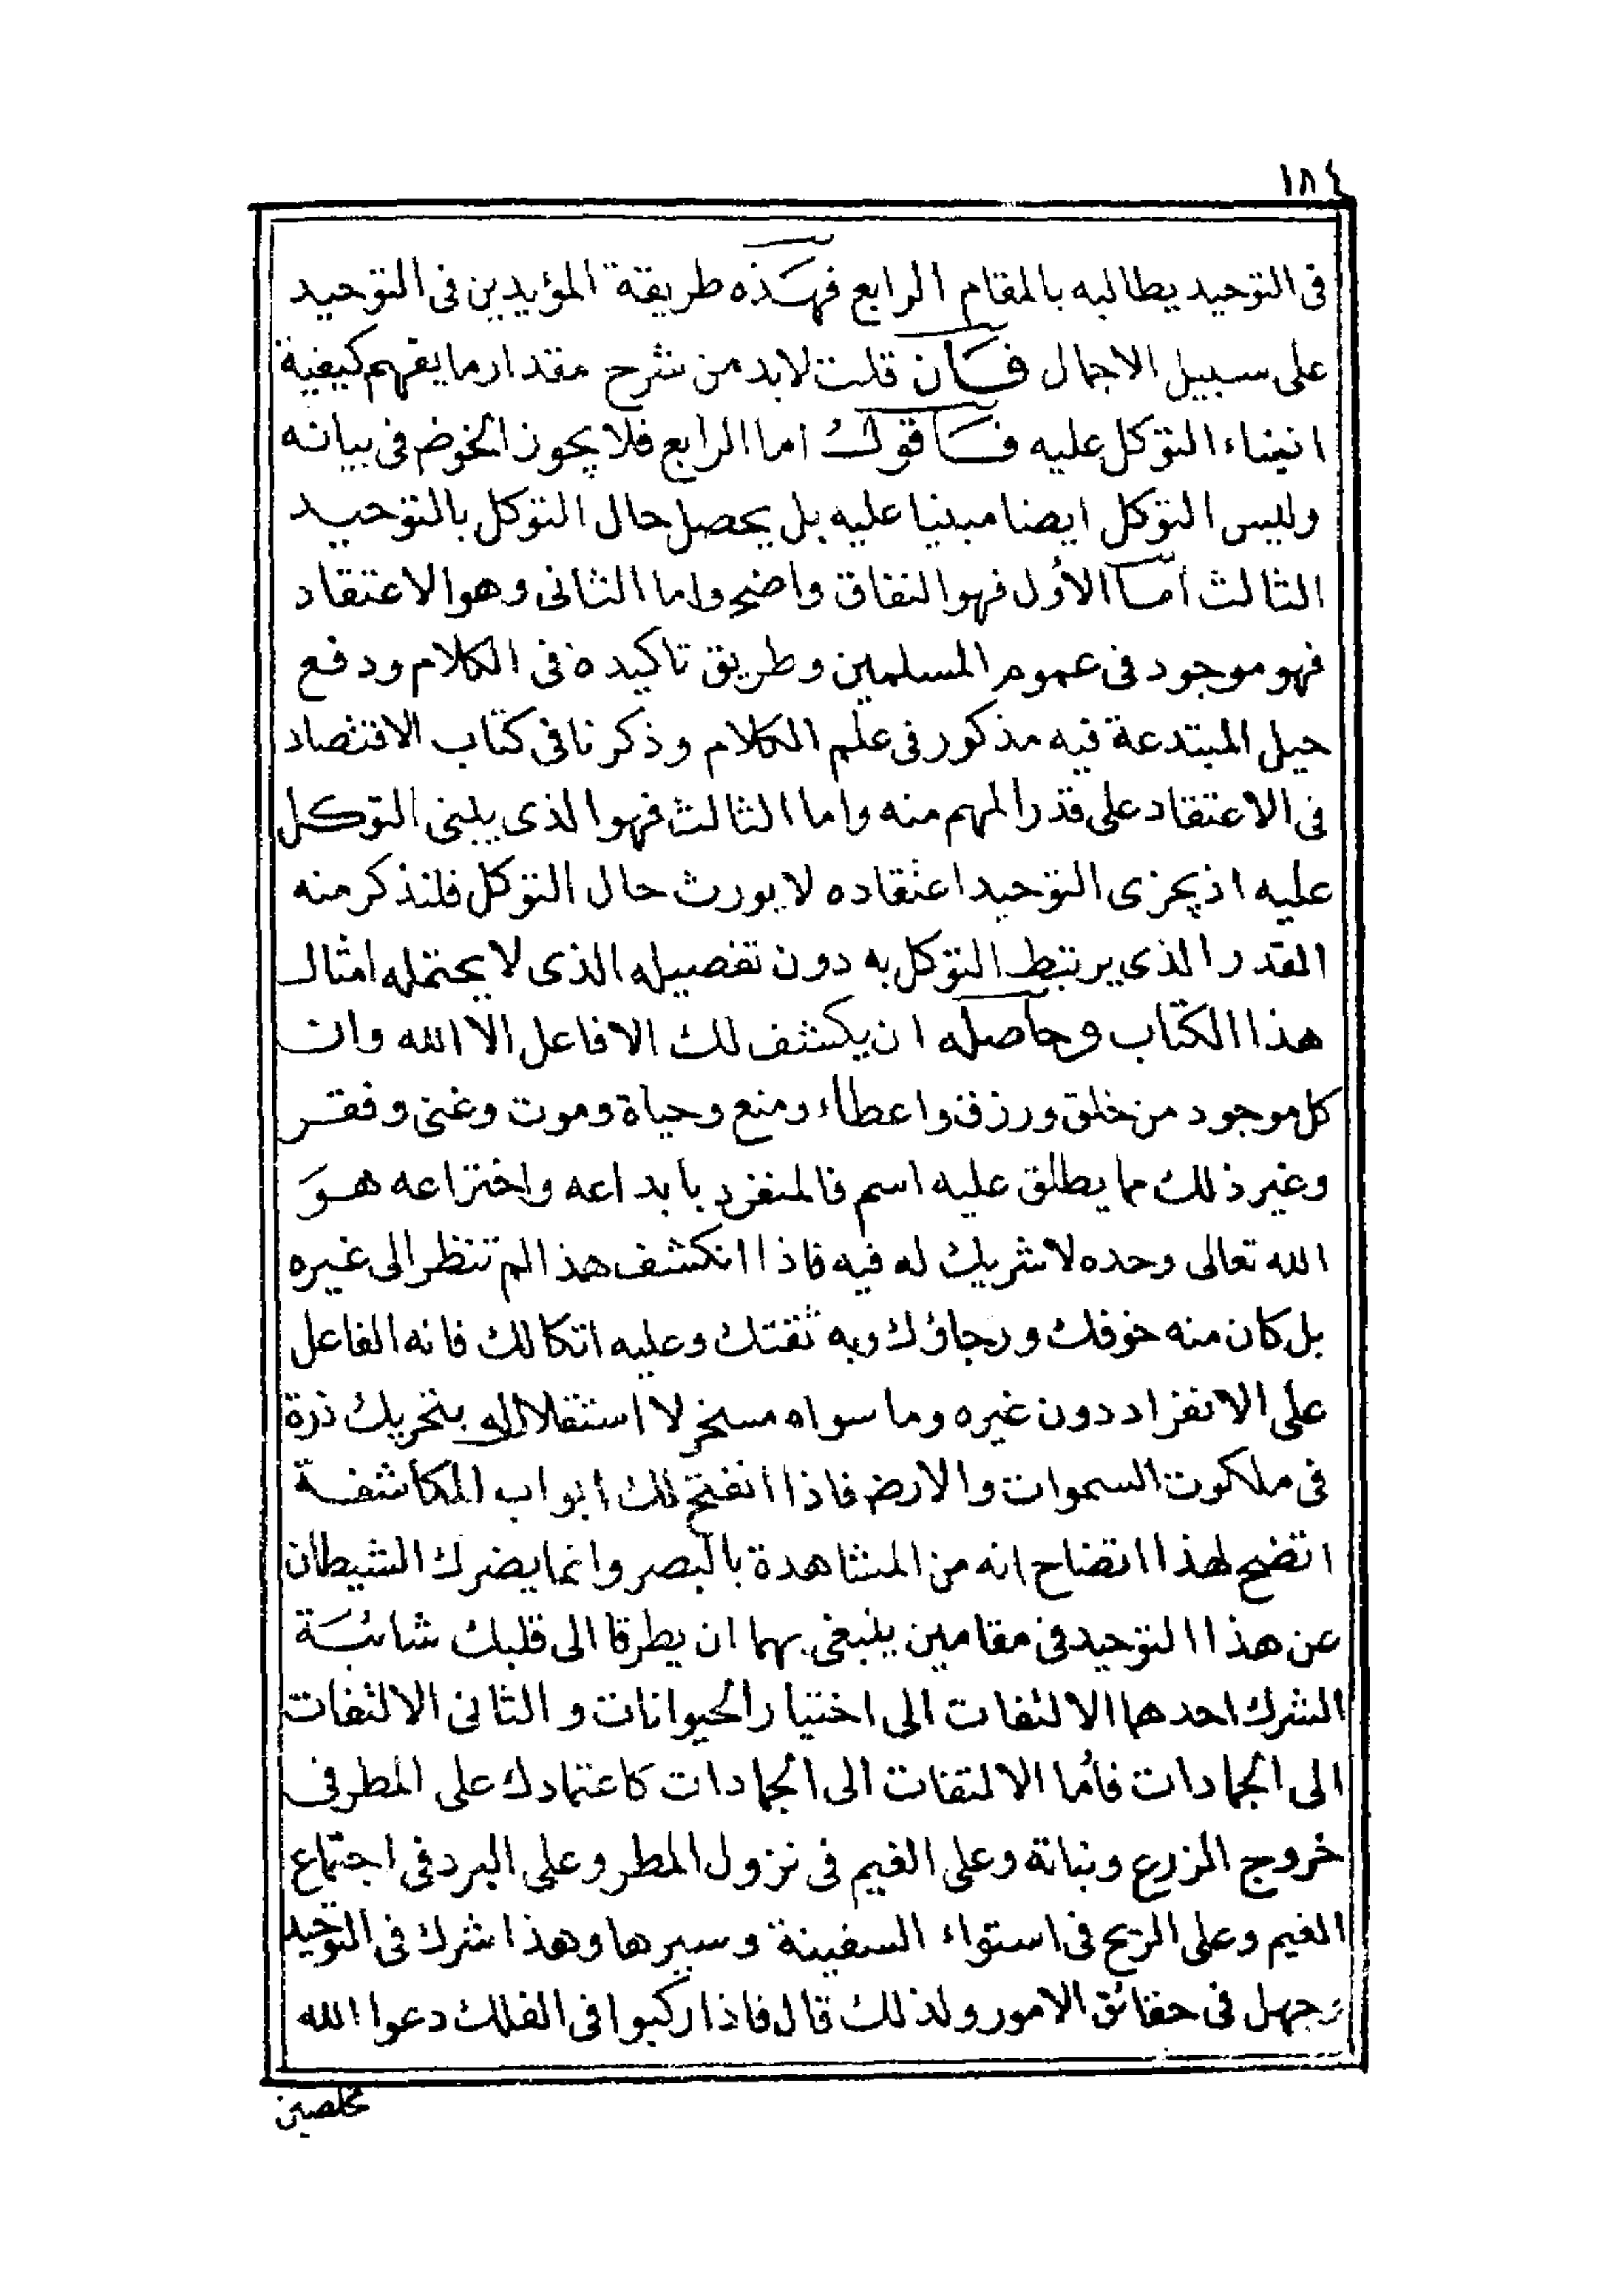 ١٨٤
فى التوحيد يطالبه بالمقام الرابع فهذه طريقة المؤيدين فى التوحيد
على سبيل الاجمال فان قلت لابد من شرح مقدار ما يفهم كيفية
ابتناء التوكل عليه فاقول اما الرابع فلا يجوز الخوض فى بيانه
وليس التوكل ايضا مبنيا عليه بل يحصل حال التوكل بالتوحيد
الثالث اما الأول فهو النفاق واضح واما الثانى وهو الاعتقاد
فهو موجود فى عموم المسلمين وطريق تاكيده فى الكلام ودفع
حيل المبتدعة فيه مذكور فى علم الكلام وذكرنا فى كتاب الاقتصاد
فى الاعتقاد على قدر المهم منه واما الثالث فهو الذى يبنى التوكل
عليه اذ يجزى التوحيد اعتقاده لا يورث حال التوكل فلنذكر منه
القدر الذى يرتبط التوكل به دون تفصيله الذى لا يحتمله امثال
هذا الكتاب وحاصله ان يكشف لك الا فاعل الا الله وان
كل موجود من خلق ورزق واعطاء ومنع وحياة وموت وغنى وفقر
وغير ذلك مما يطلق عليه اسم فالمنفرد بابداعه واختراعه هو
الله تعالى وحده لا شريك له فيه فاذا انكشف هذا لم تنظر الى غيره
بل كان منه خوفك ورجاؤك وبه ثقتك وعليه اتكالك فانه الفاعل
على الانفراد دون غيره وما سواه مسخر لا استقلال له بتحريك ذرة
فى ملكوت السموات والارض فاذا انفتح لك ابواب المكاشفة
اتضح لهذا اتضاح انه من المشاهدة بالبصر وانما يضرك الشيطان
عن هذا التوحيد فى مقامين ينبغى بهما ان يطرقا الى قلبك شائبة
الشرك احدهما الالتفات الى اختيار الحيوانات والثانى الالتفات
الى الجمادات فأما الالتفات الى الجمادات كاعتمادك على المطر فى
خروج الزرع ونباتة وعلى الغيم فى نزول المطر وعلى البرد فى اجتماع
الغيم وعلى الريح فى استواء السفينة وسيرها وهذا شرك فى التوحيد
وجهل فى حقائق الامور ولذلك قال فاذا ركبوا فى الفلك دعوا الله
مخلصين